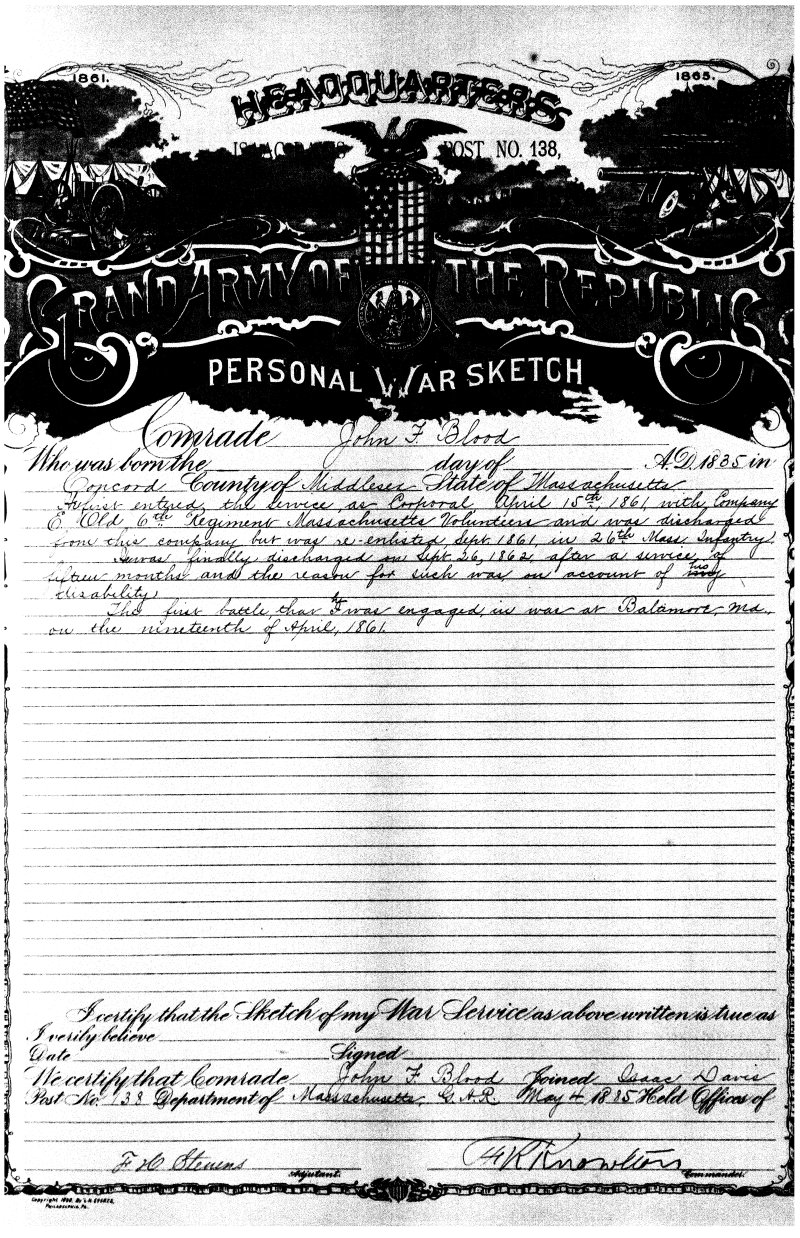 1861.
1865.
HEADQUARTERS
ISAAC DAVIS POST NO. 138,
GRAND ARMY OF THE REPUBLIC
PERSONAL WAR SKETCH
Comrade John F Blood
Who was born the day of A.D. 1835 in
Concord County of Middlesex State of Massachusetts
first entered the service as Corporal April 15th, 1861, with Company
E. Old 6th Regiment Massachusetts Volunteers and was discharged
from this company but was re-enlisted Sept. 1861, in 26th Mass. Infantry.
was finally discharged on Sept. 26, 1862, after a service of
fifteen months and the reason for such was on account of his
disability.
The first battle that he was engaged in was at Baltamore, Md.,
on the nineteenth of April, 1861.
I certify that the Sketch of my War Service as above written is true as
I verily believe
Date Signed
We certify that Comrade John F. Blood Joined Isaac Davis
Post No. 138 Department of Massachusetts, G.A.R. May 4 1885 Held Offices of
F H Stevens Adjutant.
H K Knowlton Commander.
Copyright 1890, By L.H. EVERTS,
PHILADELPHIA, PA.